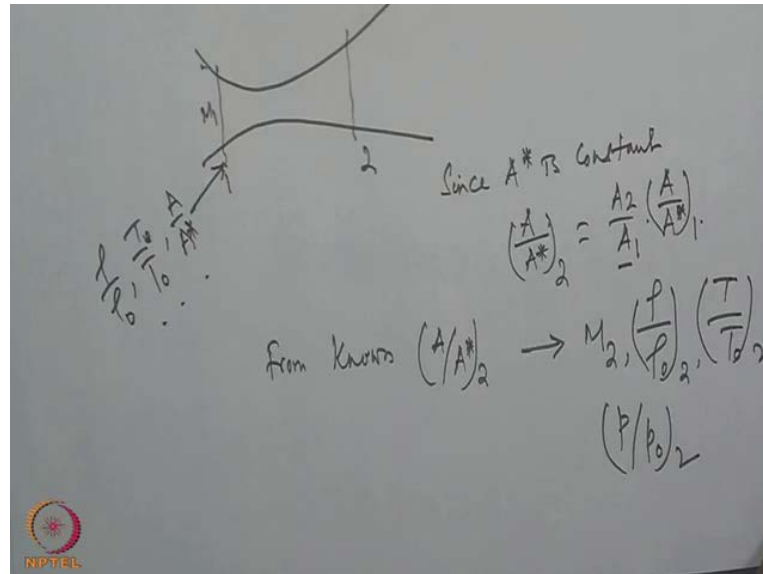 M₁
1
2
ρ/ρ₀, T/T₀, A/A* . . .
Since A* is constant
(A/A*)₂ = A₂/A₁ · (A/A*)₁.
from known (A/A*)₂ → M₂, (ρ/ρ₀)₂, (T/T₀)₂
(p/p₀)₂
NPTEL